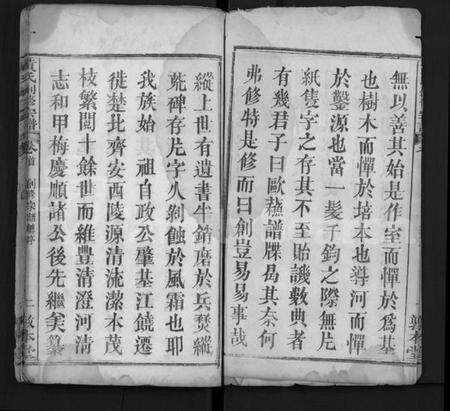 無以善其始是作室而憚於為基
也樹木而憚於培本也導河而憚
於鑿源也當一髮千鈞之際無片
紙隻字之存其不至貽譏數典者
有幾君子曰歐蘇譜牒曷其奈何
弗修特是修而曰創豈易易事哉
敦本堂
縱上世有遺書牛銷磨於兵燹縱
荒碑存片字久剝蝕於風霜也耶
我族始 祖自政公肇基江饒遷
徙楚北齊安西陵源清流潔本茂
枝繁閱十餘世而維豐清澄河清
志和甲梅慶順諸公後先繼美纂
黃氏創修宗譜 卷首 創修宗譜 二 敦本堂